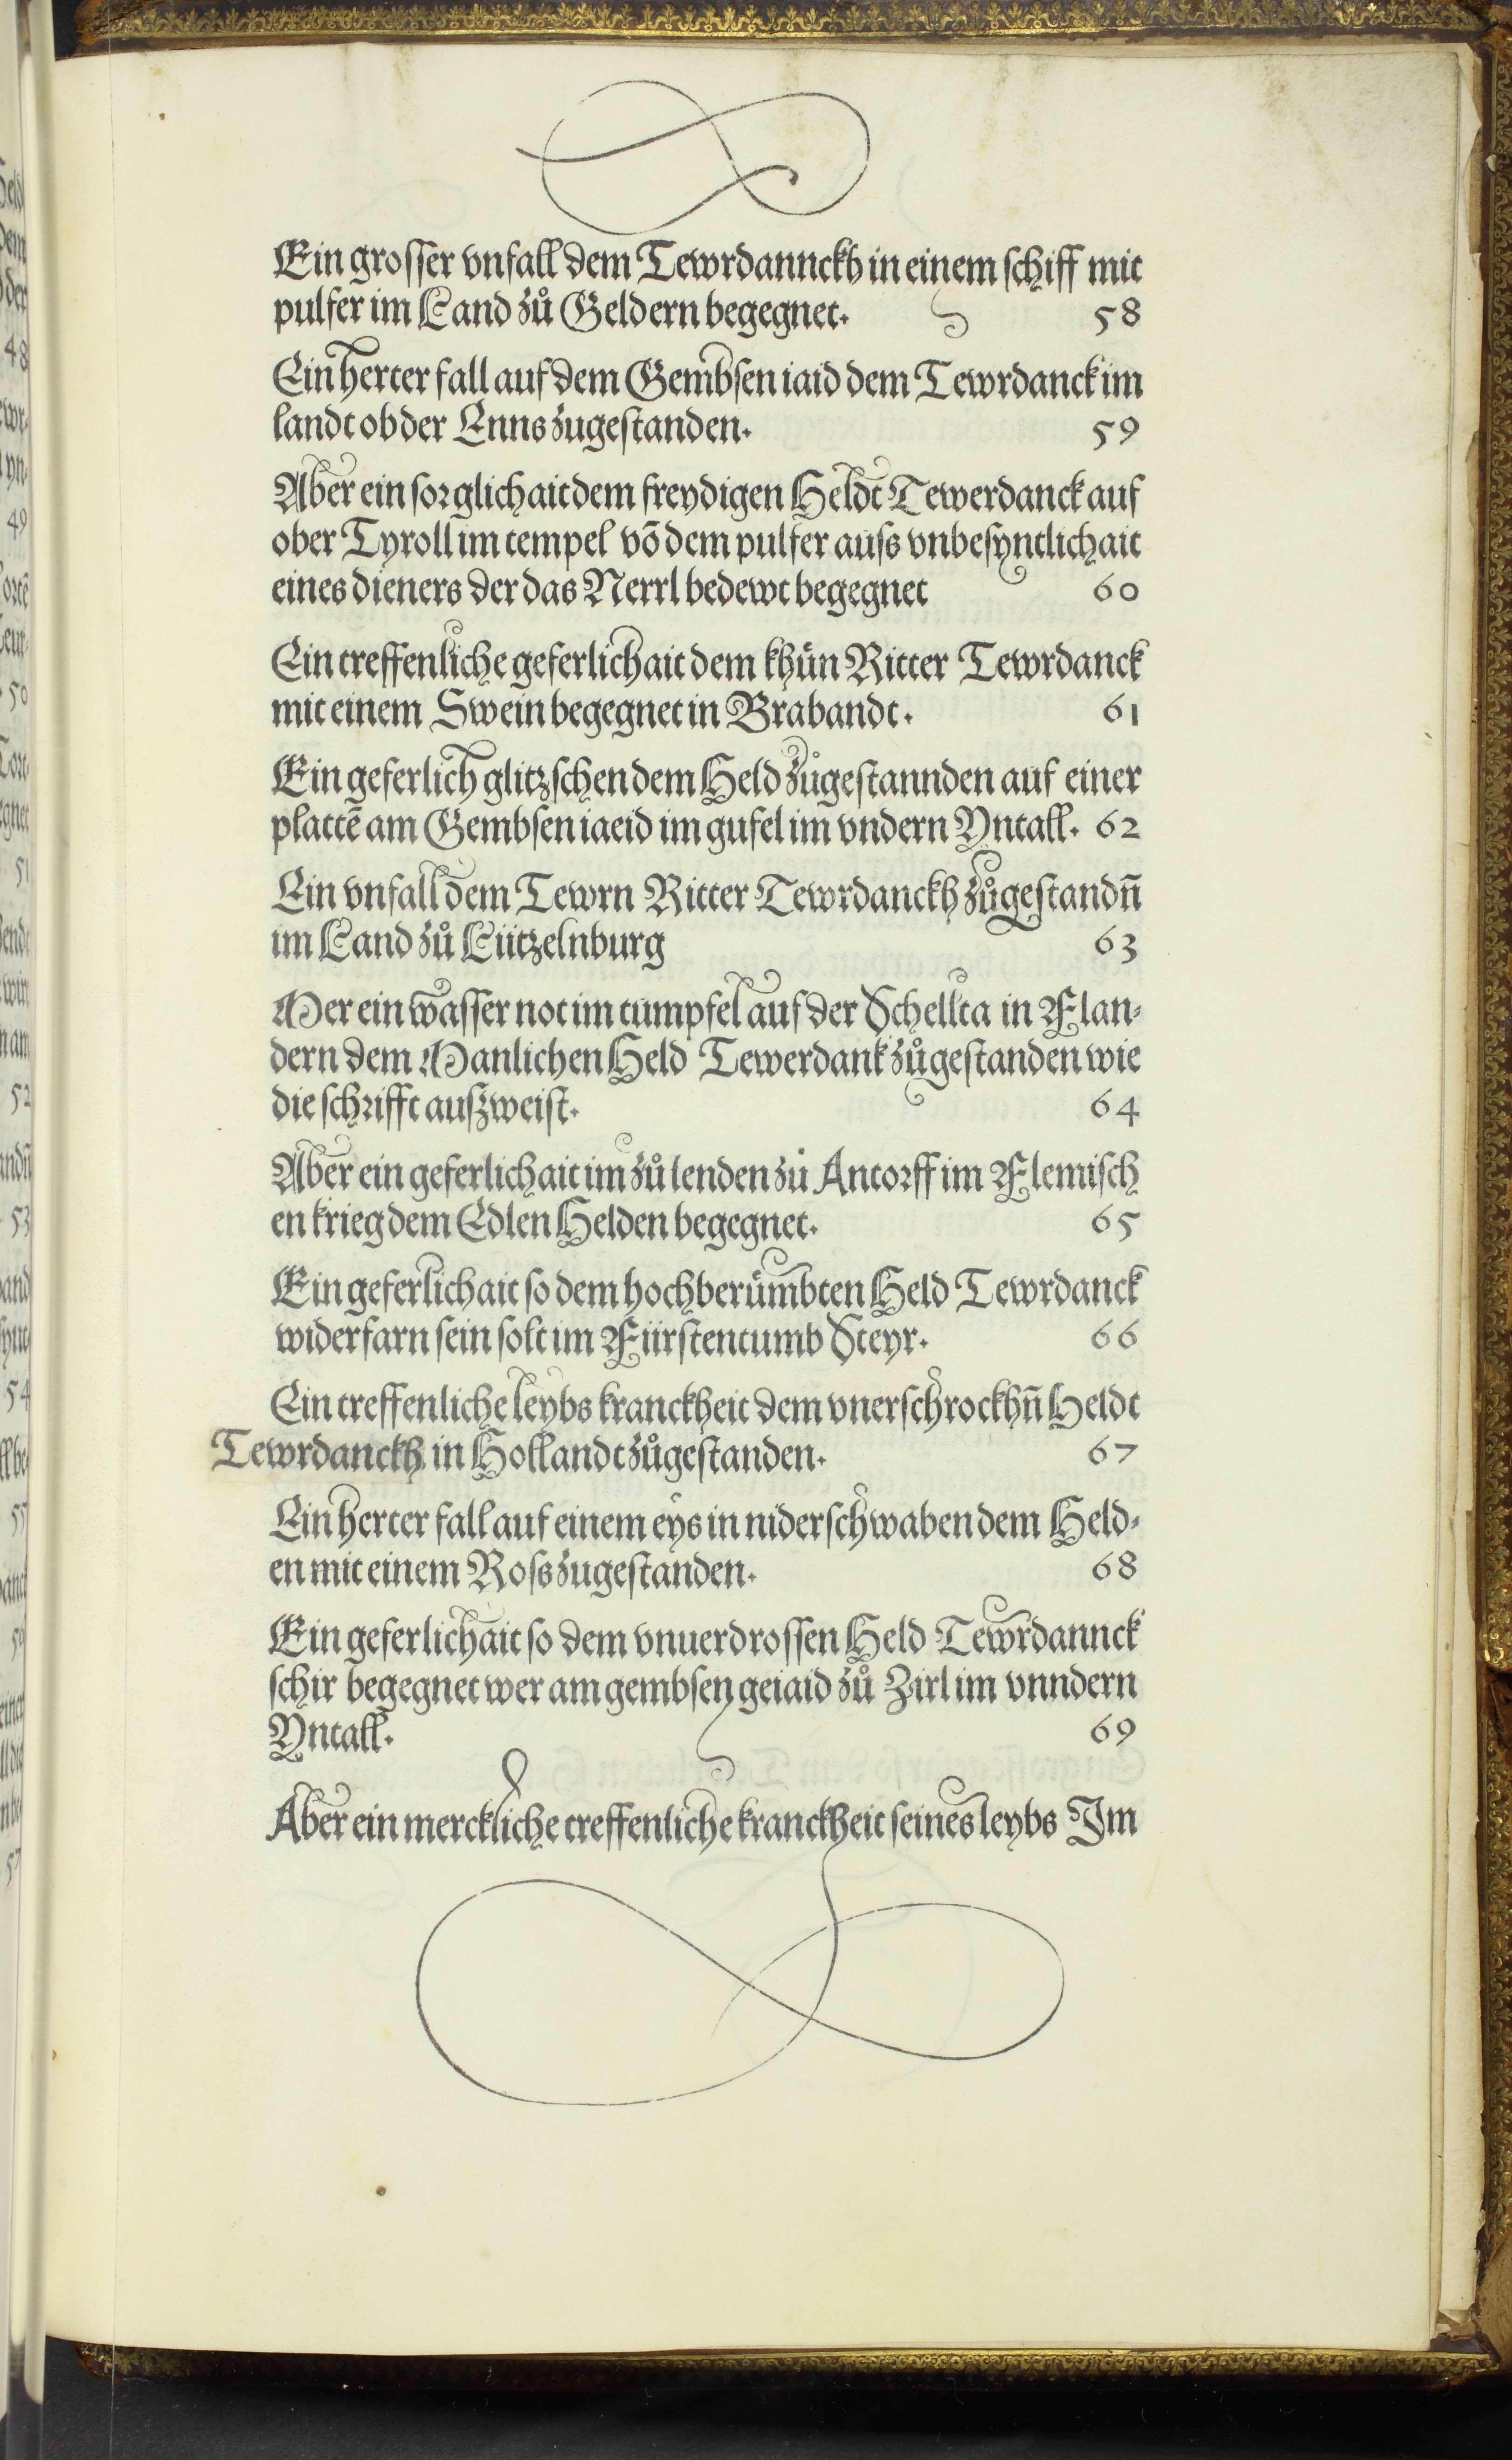 Ein grosser vnfall dem Tewrdannckh in einem schiff mit
pulfer im Land zů Geldern begegnet. 58
Ein herter fall auf dem Gembsen iaid dem Tewrdanck im
landt ob der Enns zugestanden. 59
Aber ein sorglichait dem freydigen Heldt Tewerdanck auf
ober Tyroll im tempel võ dem pulfer auss vnbesyntlichait
eines dieners der das Nerrl bedewt begegnet 60
Ein treffenliche geferlichait dem khün Ritter Tewrdanck
mit einem Swein begegnet in Brabandt. 61
Ein geferlich glitzschen dem Held zůgestannden auf einer
plattē am Gembsen iaeid im gufel im vndern Yntall. 62
Ein vnfall dem Tewrn Ritter Tewrdanckh zůgestandn̄
im Land zů Lützelnburg 63
Mer ein wasser not im tumpfel auf der Schellta in Flan-
dern dem Manlichen Held Tewerdank zůgestanden wie
die schrifft auszweist. 64
Aber ein geferlichait im zů lenden zů Antorff im Flemisch
en krieg dem Edlen Helden begegnet. 65
Ein geferlichait so dem hochberümbten Held Tewrdanck
widerfarn sein solt im Fürstentumb Steyr. 66
Ein treffenliche leybs kranckheit dem vnerschrockhn̄ Heldt
Tewrdanckh in Hollandt zůgestanden. 67
Ein herter fall auf einem eys in niderschwaben dem Held-
en mit einem Ross zugestanden. 68
Ein geferlichait so dem vnuerdrossen Held Tewrdannck
schir begegnet wer am gembsen geiaid zů Zirl im vnndern
Yntall. 69
Aber ein merckliche treffenliche kranckheit seines leybs Im